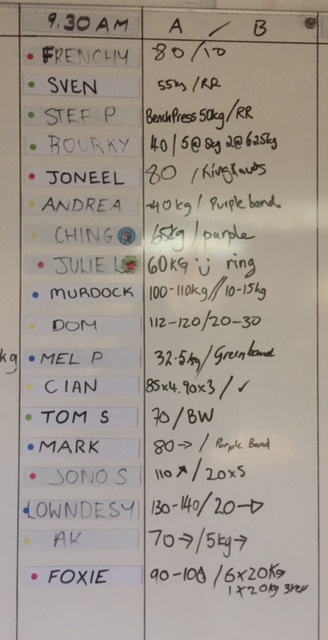 9.30 AM A / B
FRENCHY 80/10
SVEN 55kg/RR
STEF P BenchPress 50kg/RR
ROURKY 40/5@8kg 2@6.25kg
JONEEL 80 /
ANDREA 40kg / Purple band.
CHING 65kg / purple
JULIE L 60KG ring
MURDOCK 100-110kg//10-15kg
DOM 112-120/20-30
kg
MEL P 32.5kg/Greenband
CIAN 85x4.90x3/✓
TOM S 70/BW
MARK 80→/ Purple Band
JONO S 110↗/20x5
LOWNDESY 130-140/20→
AK 70→/5kg→
FOXIE 90-100/6x20kg
1x20kg